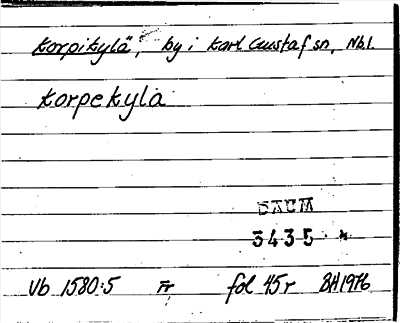 Korpikylä, by i Karl Gustaf sn, Nbl.
Korpekyla
DAUM
3435
Vb 1580:5 Fr fol 45r BH1976